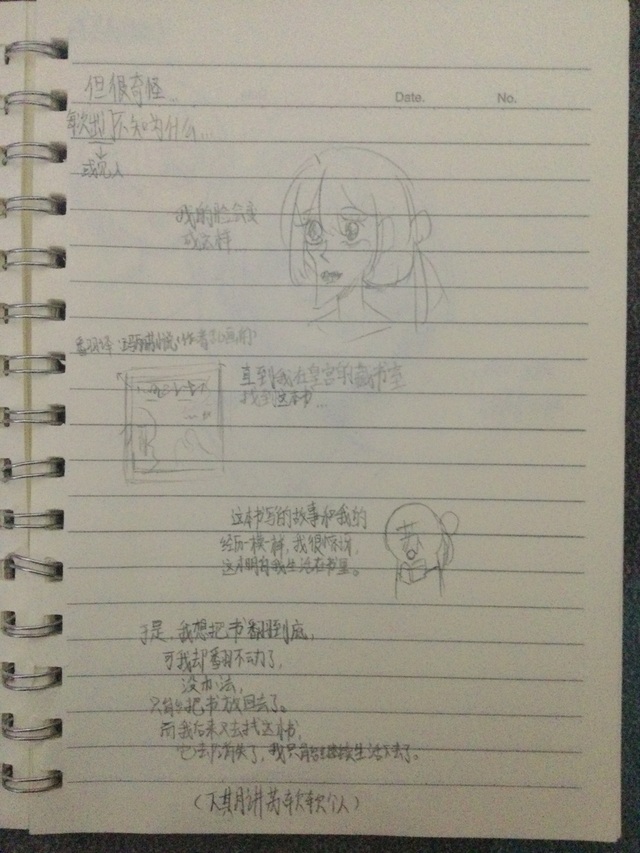 Date. No.
但很奇怪…
每次出 不知为什么…
或见人
我的脸会变
成这样
直到我在皇宫的藏书室
找到这本书…
这本书写的故事和我的
经历一模一样，我很惊讶，
这本明有我生活在书里。
于是，我想把书翻到底，
可我却翻不动了，
没办法，
只能把书放回去了。
而我后来又去找这本书，
它去消失了，我只有继续生活下去了。
（下期讲苏软软个人）